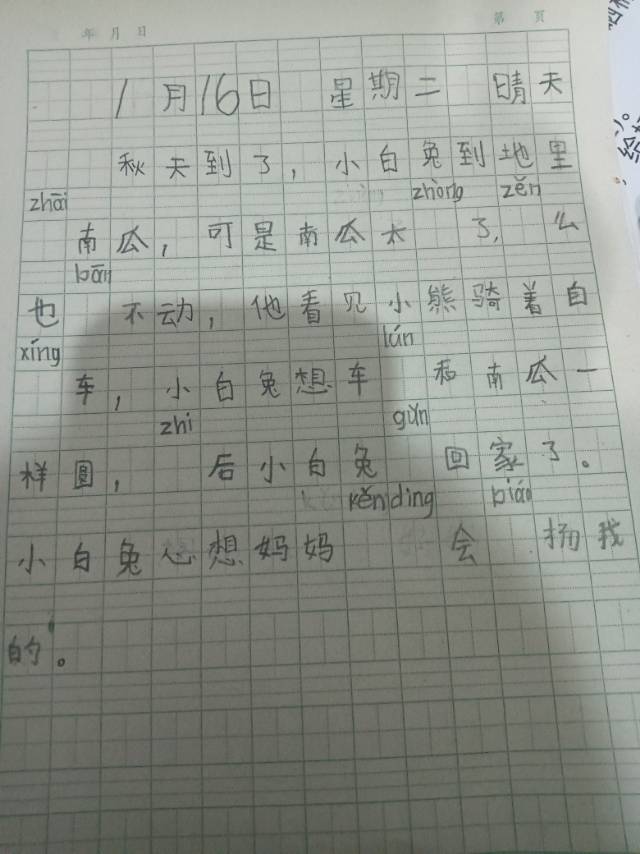 年 月 日 第 页
1月16日 星期二 晴天
秋天到了，小白兔到地里
zhāi zhòng zěn
南瓜，可是南瓜太 了，么
bān
也 不动，他看见小熊骑着自
xíng lún
车，小白兔想车 和南瓜一
zhi gǔn
样圆， 后小白兔 回家了。
kěn ding biáo
小白兔心想妈妈 会 扬我
的。